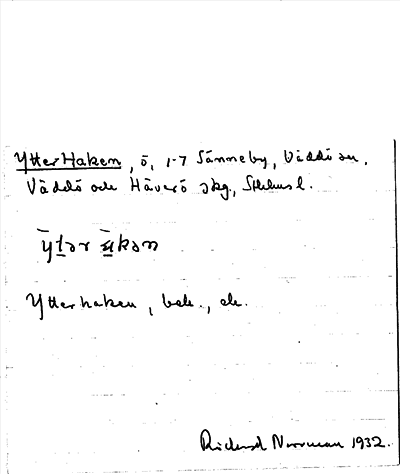 Ytter Haken, ö, 1-7 Sänneby, Väddö sn.
Väddö och Häverö skg, Sthlms l.
ȳtər ūkən
Ytterhaken, bek., ek.
Rickard Norrman 1932.